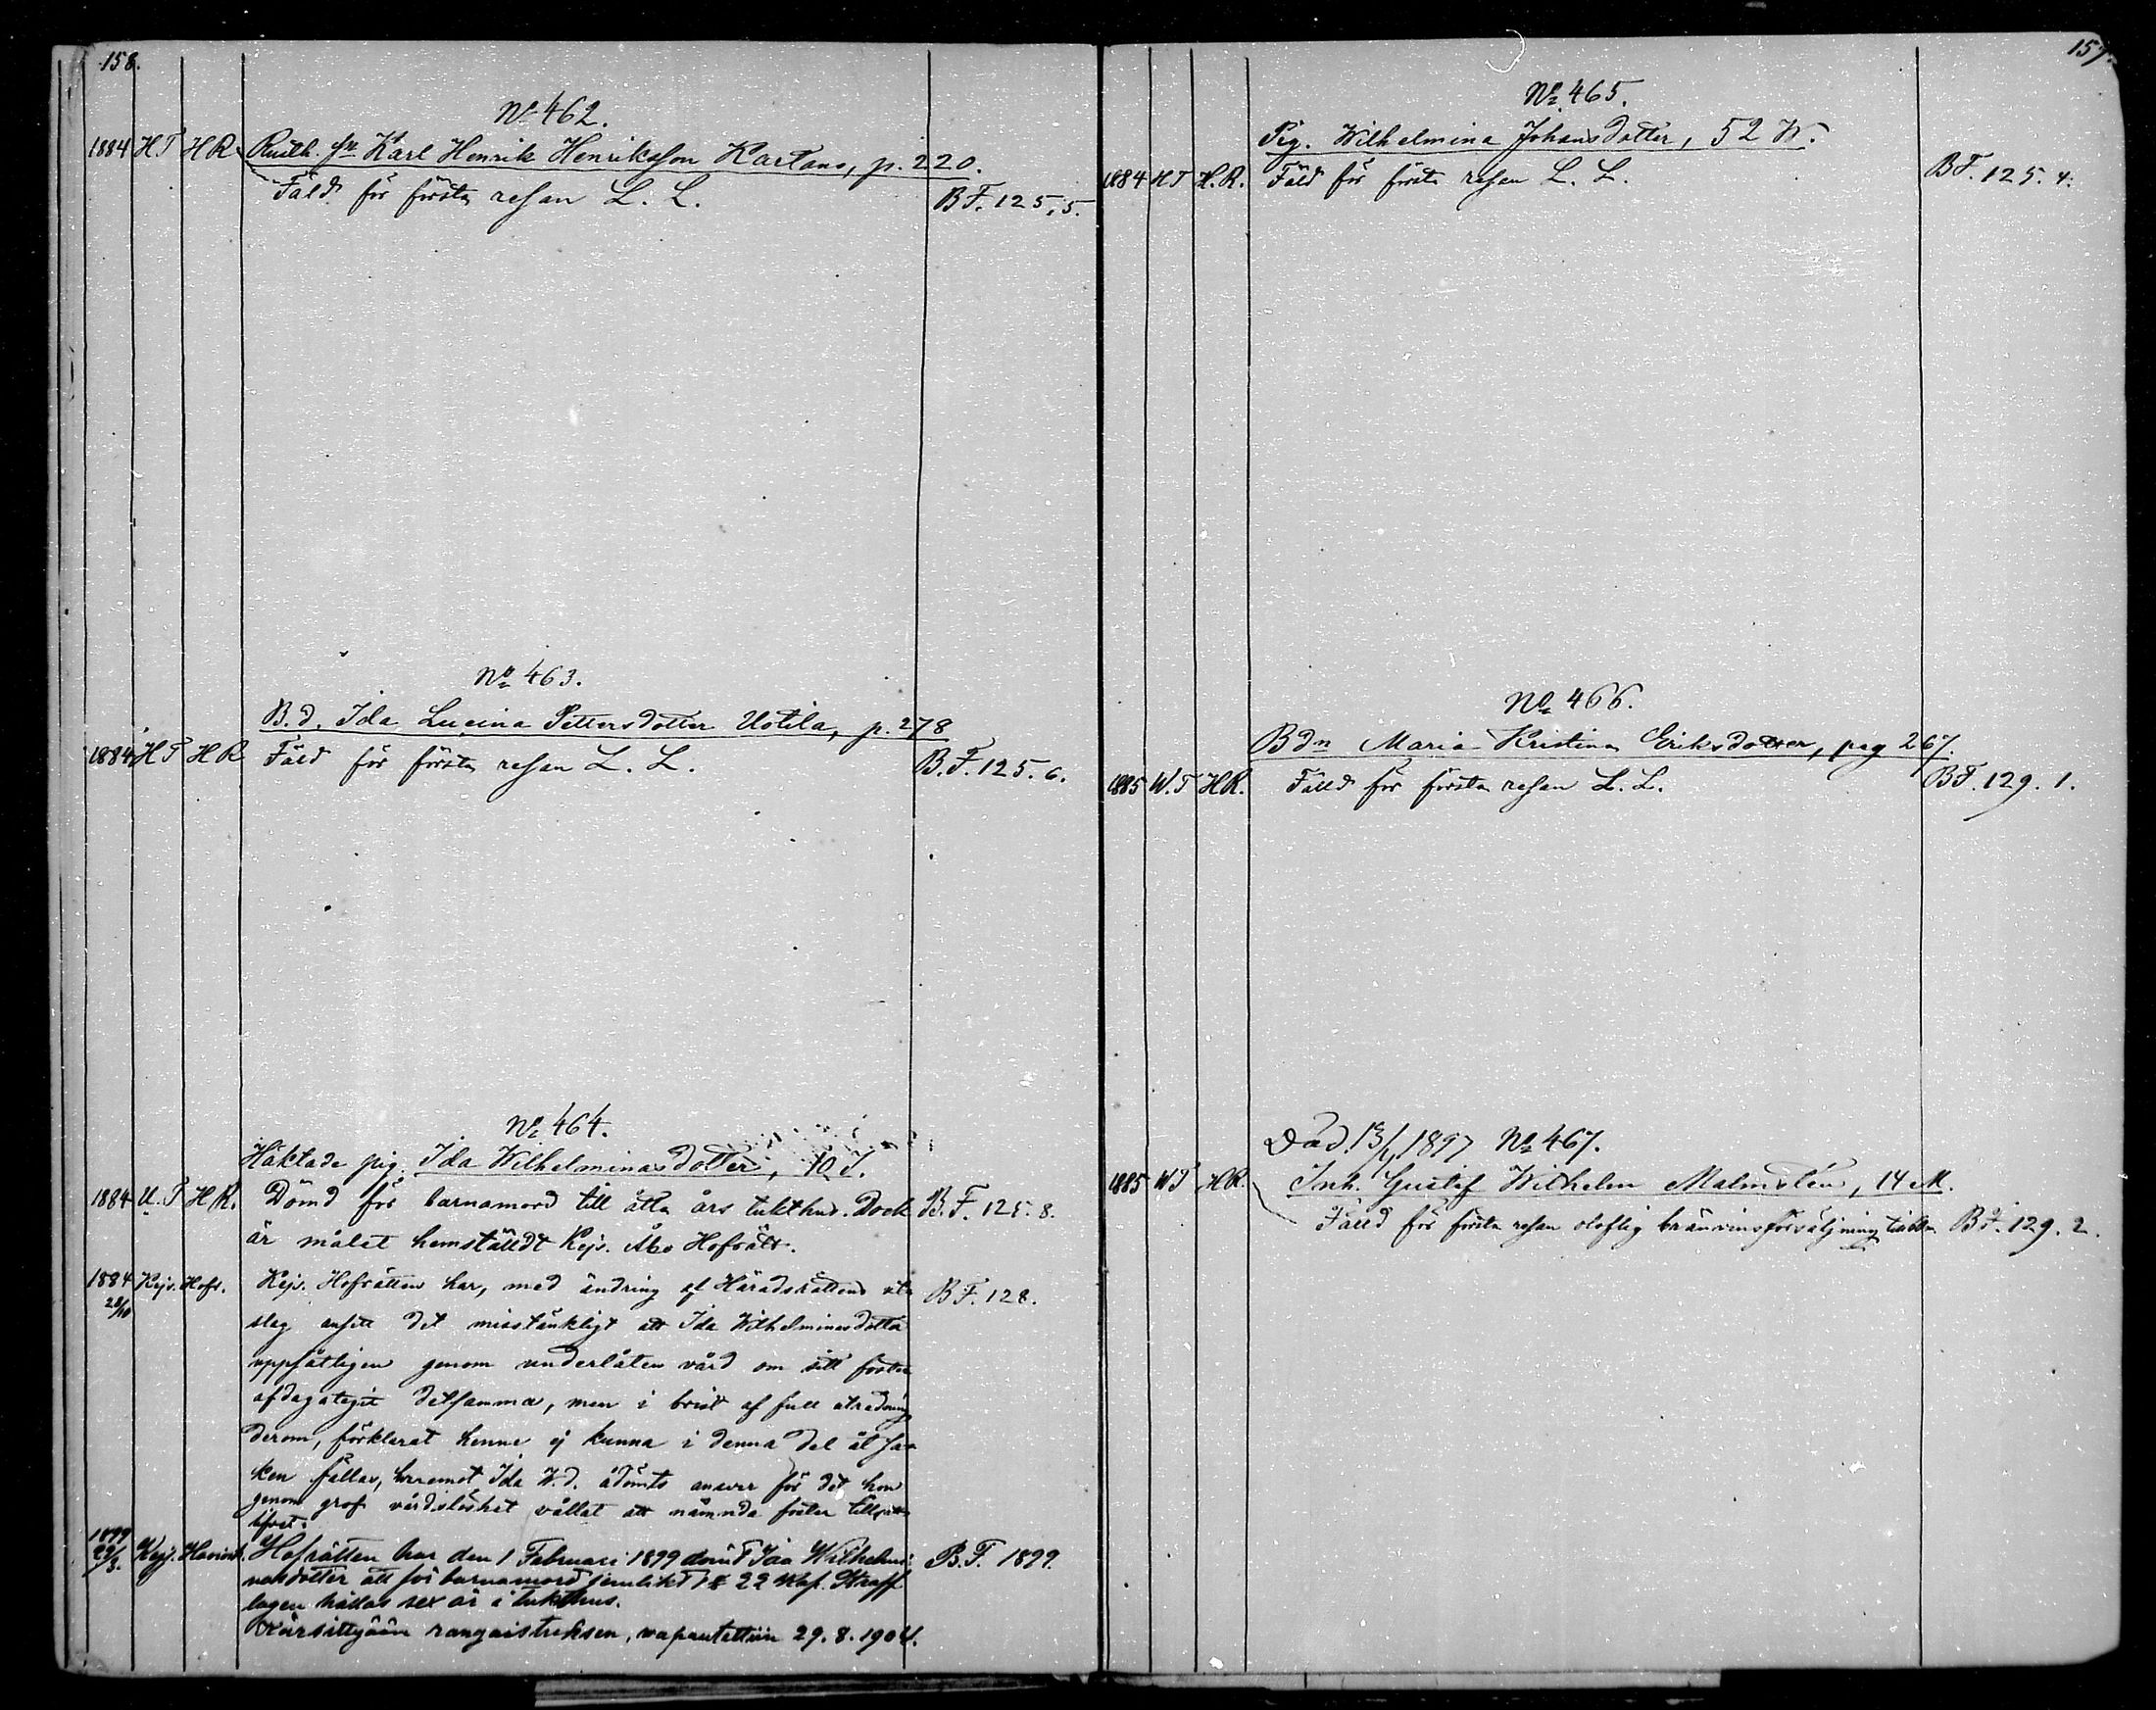 158.
No 462.
1884 HT HR Rusth. sn Karl Henrik Henriksson Kartano, p. 220.
Fäld för första resan L. L. B F. 125,5.
No 463.
B. d. Ida Lucina Pettersdotter Uotila, p. 278
1884 HT HR Fäld för första resan L. L. B. F. 125. 6.
No 464.
Häktade pig. Ida Wilhelminasdotter, 10 T.
1884 U. T H R. Dömd för barnamord till åtta års tukthus. Dock B. F. 125. 8.
är målet hemställdt Kejs. Åbo Hofrätt.
1884 28/10 Kejs. Hofr. Kejs. Hofrätten har, med ändring af Häradsrättens ut- B F. 128.
slag ansett det misstänkligt att Ida Wilhelminasdotter
uppsåtligen genom underlåten vård om sitt foster
afdagatagit detsamma, men i brist af full utredning
derom, förklarat henne ej kunna i denna del åt sa-
ken fällas, hvaremot Ida W.d. ådömts ansvar för det hon
genom grof vårdslöshet vållat att nämnda foster tillsatt
lifvet.
1899 29/3. Kejs. Hofrätten har den 1 Februari 1899 dömt Ida Wilhelmi- B. F. 1899.
nasdotter att för barnamord jemlikt 1 § 22 Kap. Straff
lagen hållas sex år i tukthus.
Kärsittyään rangaistuksen, vapautettiin 29. 8. 1904.
157.
No 465.
Pig. Wilhelmina Johansdotter, 52 W.
1884 HT H. R. Fäld för första resan L. L. B F. 125. 4.
No 466.
Bdn Maria Kristina Eriksdotter, pag 267.
1885 W. T HR. Fälld för första resan L. L. B F. 129. 1.
Död 13/1 1897 No 467.
1885 WT HR. Inh. Gustaf Wilhelm Malmstén, 14 M.
Fälld för första resan oloflig bränvinsförsäljning B F. 129. 2.